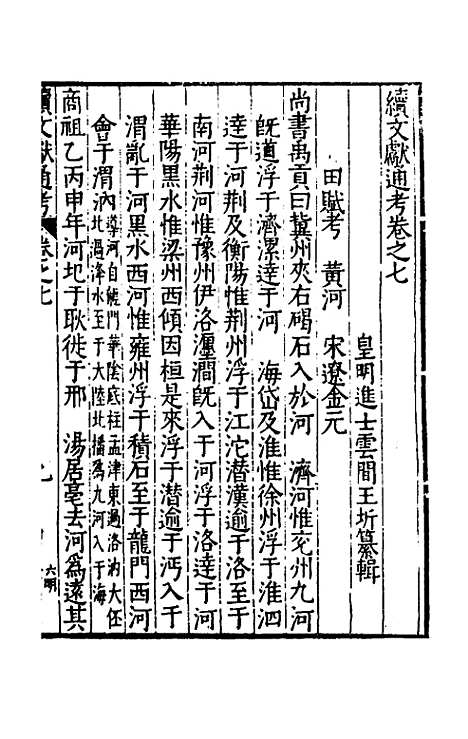 續文獻通考卷之七
皇明進士雲間王圻纂輯
田賦考　黃河　宋遼金元
尚書禹貢曰冀州夾右碣石入於河　濟河惟兖州九河
旣道浮于濟漯達于河　海岱及淮惟徐州浮于淮泗
達于河荆及衡陽惟荆州浮于江沱潜漢逾于洛至于
南河荆河惟豫州伊洛瀍澗旣入于河浮于洛達于河
華陽黑水惟梁州西傾因桓是來浮于潜逾于沔入于
渭亂于河黑水西河惟雍州浮于積石至于龍門西河
會于渭汭導河自龍門華陰底柱孟津東過洛汭大伾
北過洚水至于大陸北播爲九河入于海
商祖乙丙申年河圮于耿徙于邢　湯居亳去河爲遠其
續文獻通考　卷之七